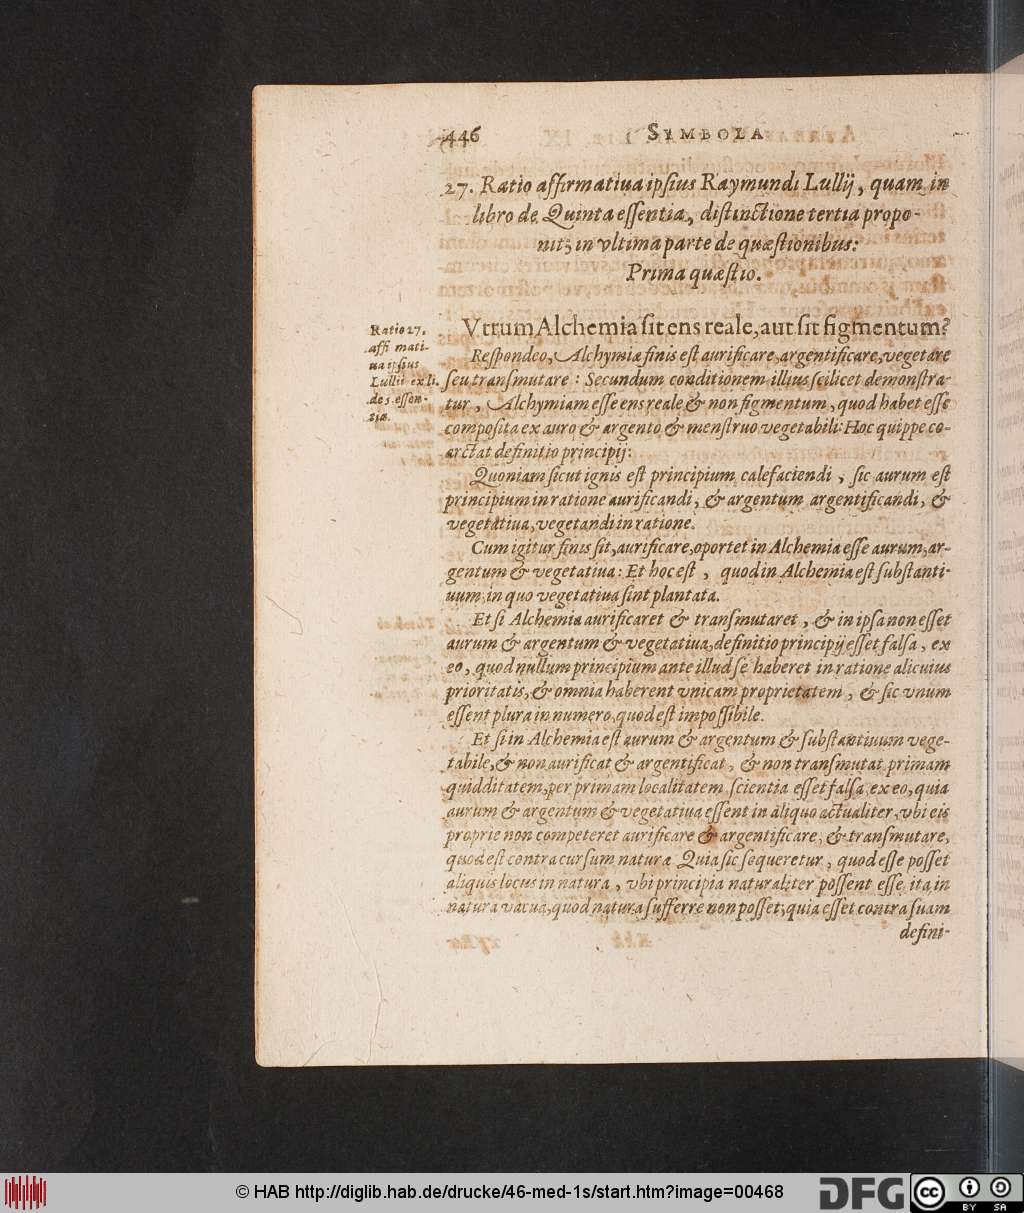 446 SYMBOLA
27. Ratio affirmatiua ipsius Raymundi Lullij, quam in
libro de Quinta essentia, distinctione tertia propo-
nit, in vltima parte de quæstionibus:
Prima quæstio.
Ratio 27.
affi mati-
ua ipsius
Lullii ex li.
de 5. essen-
tia.
Vtrum Alchemia sit ens reale, aut sit figmentum?
Respondeo, Alchymiæ finis est aurificare, argentificare, vegetare
seu transmutare: Secundum conditionem illius scilicet demonstra-
tur, Alchymiam esse ens reale & non figmentum, quod habet esse
composita ex auro & argento & menstruo vegetabili: Hoc quippe co-
arctat definitio principij:
Quoniam sicut ignis est principium calefaciendi, sic aurum est
principium in ratione aurificandi, & argentum argentificandi, &
vegetatiua, vegetandi in ratione.
Cum igitur finis sit, aurificare, oportet in Alchemia esse aurum, ar-
gentum & vegetatiua: Et hoc est, quod in Alchemia est substanti-
uum, in quo vegetatiua sint plantata.
Et si Alchemia aurificaret & transmutaret, & in ipsa non esset
aurum & argentum & vegetatiua, definitio principij esset falsa, ex
eo, quod nullum principium ante illud se haberet in ratione alicuius
prioritatis, & omnia haberent vnicam proprietatem, & sic vnum
essent plura in numero, quod est impossibile.
Et si in Alchemia est aurum & argentum & substantiuum vege-
tabile, & non aurificat & argentificat, & non transmutat primam
quidditatem, per primam localitatem scientia esset falsa, ex eo, quia
aurum & argentum & vegetatiua essent in aliquo actualiter, vbi eis
proprie non competeret aurificare & argentificare, & transmutare,
quod est contra cursum naturæ Quia sic sequeretur, quod esse posset
aliquis locus in natura, vbi principia naturaliter possent esse ita in
natura vacua, quod natura sufferre non posset, quia esset contra suam
defini-
© HAB http://diglib.hab.de/drucke/46-med-1s/start.htm?image=00468
DFG
cc
BY SA